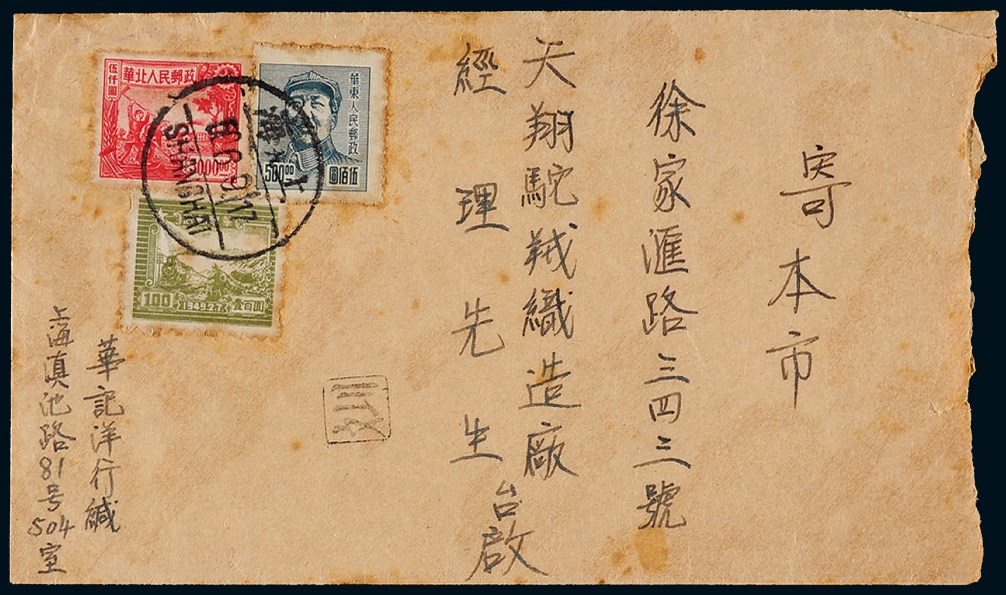 寄本市
徐家滙路三四三號
天翔駝羢織造廠
經理先生台啟
華記洋行緘
上海滇池路81号504室
華北人民郵政
伍仟圓
5000.00
華東人民郵政
500.00
伍佰圓
100
1949.2.7
壹百圓
上海
SHANGHAI